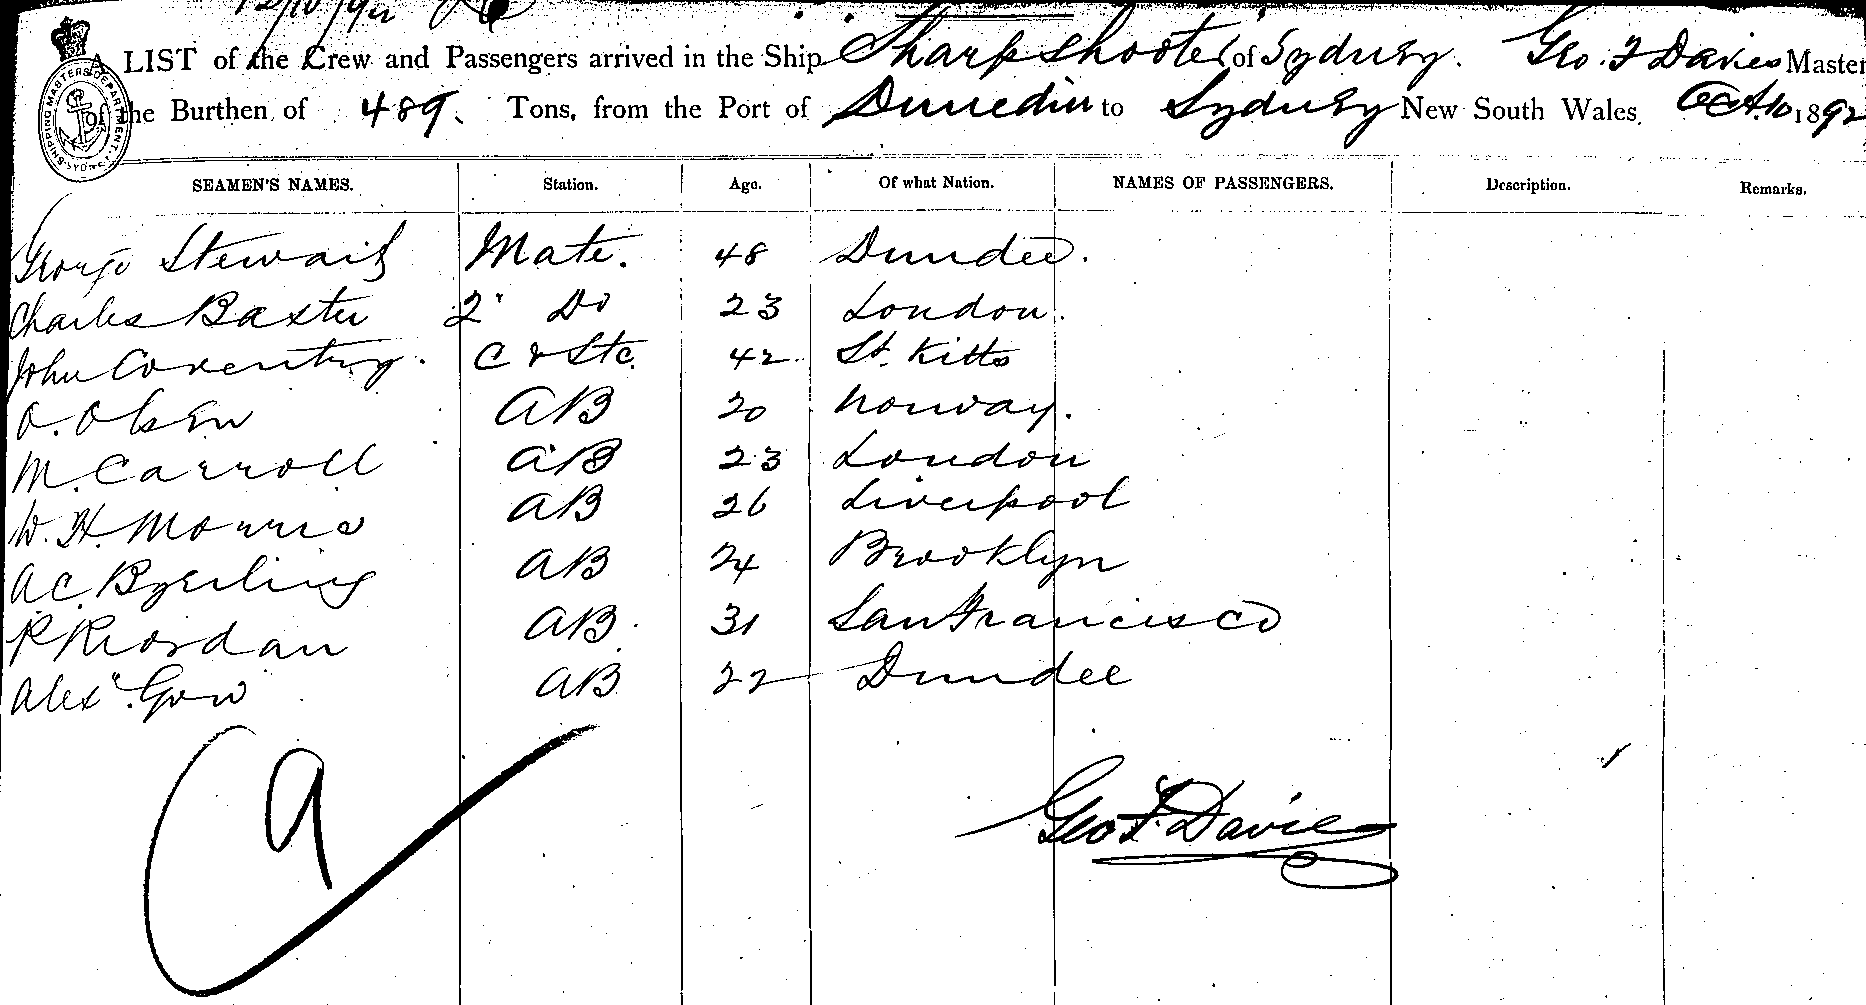 12/10/92
A LIST of the Crew and Passengers arrived in the Ship Sharpshooter of Sydney. Geo. F Davies Master
of the Burthen of 489. Tons, from the Port of Dunedin to Sydney New South Wales, Oct. 10 1892
SHIPPING MASTERS DEPARTMENT
SEAMEN'S NAMES. Station. Age. Of what Nation. NAMES OF PASSENGERS. Description. Remarks.
George Stewart Mate. 48 Dundee.
Charles Baxter 2" Do 23 London.
John Coventry. C & Std. 42 St. Kitts
O. Olsen AB 20 Norway.
M. Carroll AB 23 London
W. H. Morris AB 26 Liverpool
A C Byerling AB 24 Brooklyn
P. Riordan AB. 31 San Francisco
Alex". Gow AB 22 Dundee
9
Geo F. Davies